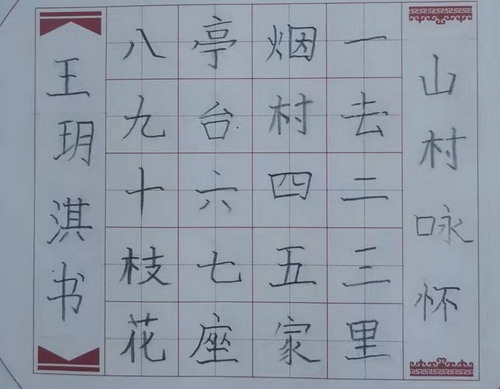 山村咏怀
一去二三里
烟村四五家
亭台六七座
八九十枝花
王玥淇书